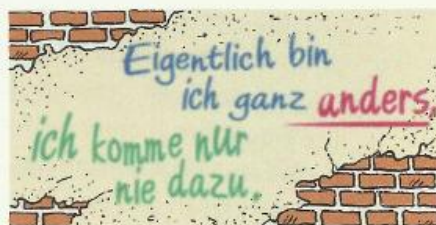 Eigentlich bin
ich ganz anders,
ich komme nur
nie dazu.